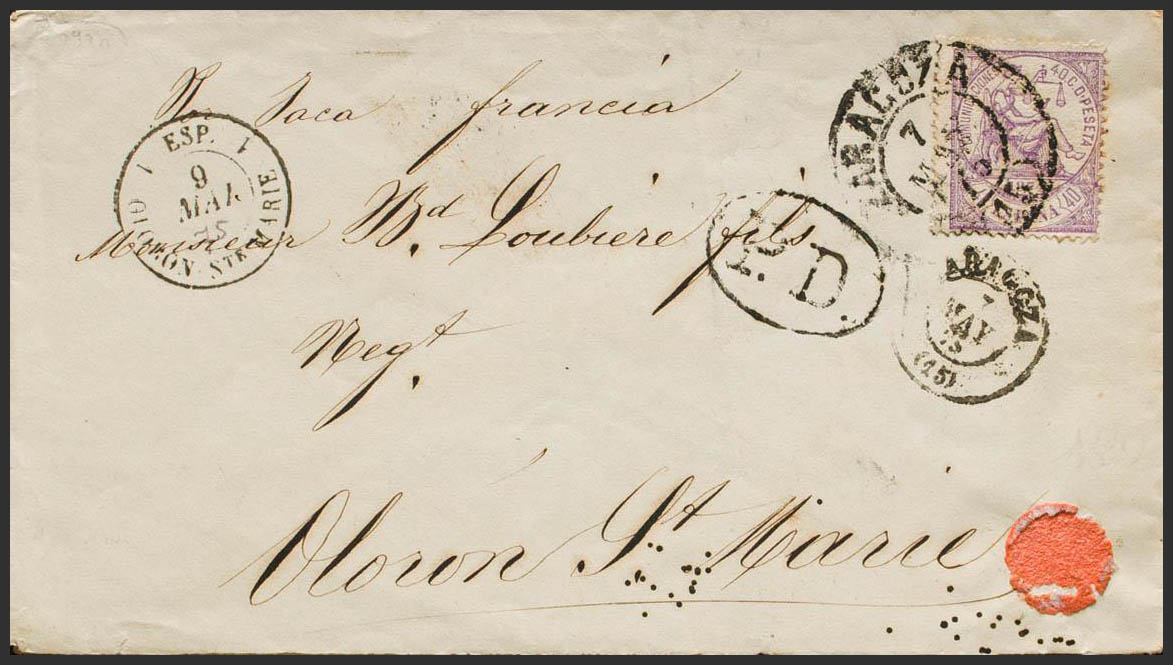 Por Jaca francia
Monsieur Bd Loubiere fils
Negt.
Oloron St Marie
ESP.
9
MAI
75
OLORON-STE-MARIE
P.D.
ARAGOZA
7
MAY
75
(15)
ZARAGOZA
7
MAY
COMUNICACIONES
40 C. D PESETA
ESPAÑA